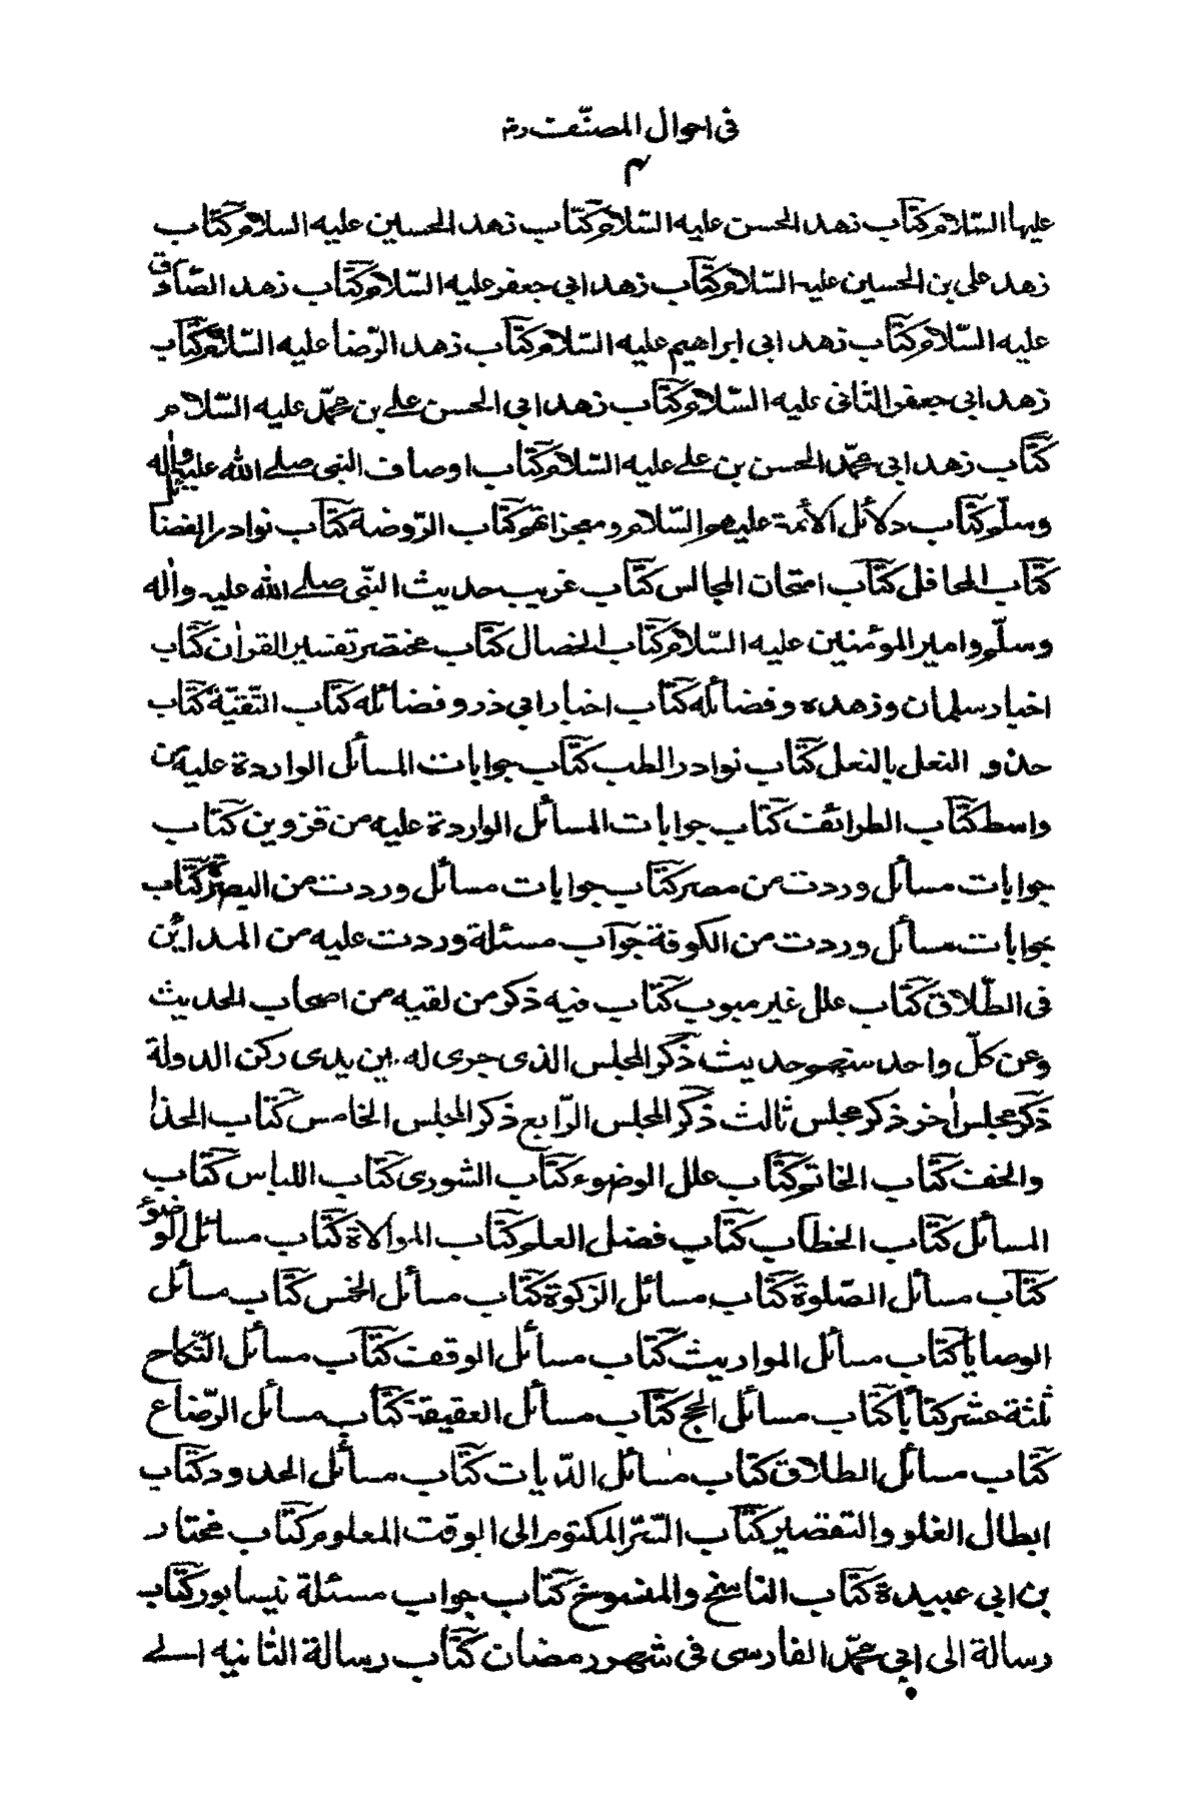 فى احوال المصنّف ره
٣
عليها السّلام كتاب زهد الحسن عليه السّلام كتاب زهد الحسين عليه السلام كتاب
زهد على بن الحسين عليه السّلام كتاب زهد ابى جعفر عليه السّلام كتاب زهد الصّادق
عليه السّلام كتاب زهد ابى ابراهيم عليه السّلام كتاب زهد الرّضا عليه السّلام كتاب
زهد ابى جعفر الثانى عليه السّلام كتاب زهد ابى الحسن على بن محمّد عليه السّلام
كتاب زهد ابى محمّد الحسن بن على عليه السّلام كتاب اوصاف النبى صلى الله عليه واٰله
وسلّم كتاب دلائل الأئمة عليهم السّلام ومعجزاتهم كتاب الرّوضة كتاب نوادر الفضائل
كتاب المحافل كتاب امتحان المجالس كتاب غريب حديث النبّى صلى الله عليه واٰله
وسلّم وامير المؤمنين عليه السّلام كتاب الخصال كتاب مختصر تفسير القراٰن كتاب
اخبار سلمان وزهده وفضائله كتاب اخبار ابى ذر وفضائله كتاب التّقيّة كتاب
حذو النعل بالنعل كتاب نوادر الطب كتاب جوابات المسائل الواردة عليه من
واسط كتاب الطرائف كتاب جوابات المسائل الواردة عليه من قزوين كتاب
جوابات مسائل وردت من مصر كتاب جوابات مسائل وردت من البصرة كتاب
جوابات مسائل وردت من الكوفة جواب مسئلة وردت عليه من المدائن
فى الطّلاق كتاب علل غير مبوب كتاب فيه ذكر من لقيه من اصحاب الحديث
وعن كلّ واحد منهم حديث ذكر المجلس الذى جرى له بين يدى ركن الدولة
ذكر مجلس اٰخر ذكر مجلس ثالث ذكر المجلس الرّابع ذكر المجلس الخامس كتاب الحذا
والخف كتاب الخاتم كتاب علل الوضوء كتاب الشورى كتاب اللباس كتاب
المسائل كتاب الخطاب كتاب فضل العلم كتاب الموالاة كتاب مسائل الوضوء
كتاب مسائل الصّلوة كتاب مسائل الزكوة كتاب مسائل الخمس كتاب مسائل
الوصايا كتاب مسائل المواريث كتاب مسائل الوقف كتاب مسائل النّكاح
ثلثة عشر كتابًا كتاب مسائل الحج كتاب مسائل العقيقة كتاب مسائل الرّضاع
كتاب مسائل الطلاق كتاب مسائل الدّيات كتاب مسائل الحدود كتاب
ابطال الغلو والتقصير كتاب السّرّ المكتوم الى الوقت المعلوم كتاب مختار
بن ابى عبيدة كتاب الناسخ والمنسوخ كتاب جواب مسئلة نيسابور كتاب
رسالة الى ابى محمّد الفارسى فى شهر رمضان كتاب رسالة الثانيه الى